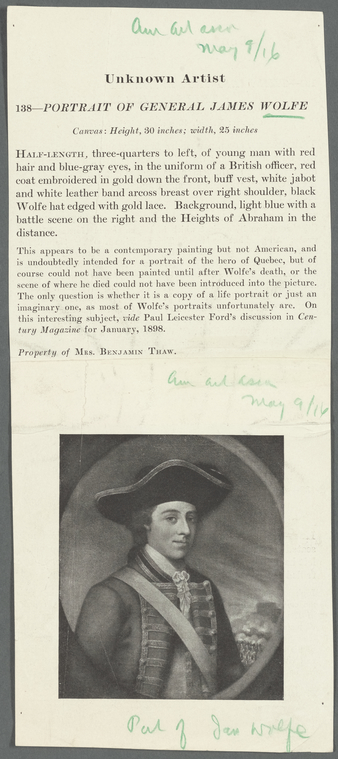 Am Art assn
May 9/16
Unknown Artist
138—PORTRAIT OF GENERAL JAMES WOLFE
Canvas: Height, 30 inches; width, 25 inches
HALF-LENGTH, three-quarters to left, of young man with red
hair and blue-gray eyes, in the uniform of a British officer, red
coat embroidered in gold down the front, buff vest, white jabot
and white leather band arcoss breast over right shoulder, black
Wolfe hat edged with gold lace. Background, light blue with a
battle scene on the right and the Heights of Abraham in the
distance.
This appears to be a contemporary painting but not American, and
is undoubtedly intended for a portrait of the hero of Quebec, but of
course could not have been painted until after Wolfe's death, or the
scene of where he died could not have been introduced into the picture.
The only question is whether it is a copy of a life portrait or just an
imaginary one, as most of Wolfe's portraits unfortunately are. On
this interesting subject, vide Paul Leicester Ford's discussion in Cen-
tury Magazine for January, 1898.
Property of MRS. BENJAMIN THAW.
Am art assn
May 9/16
Port of Jas Wolfe